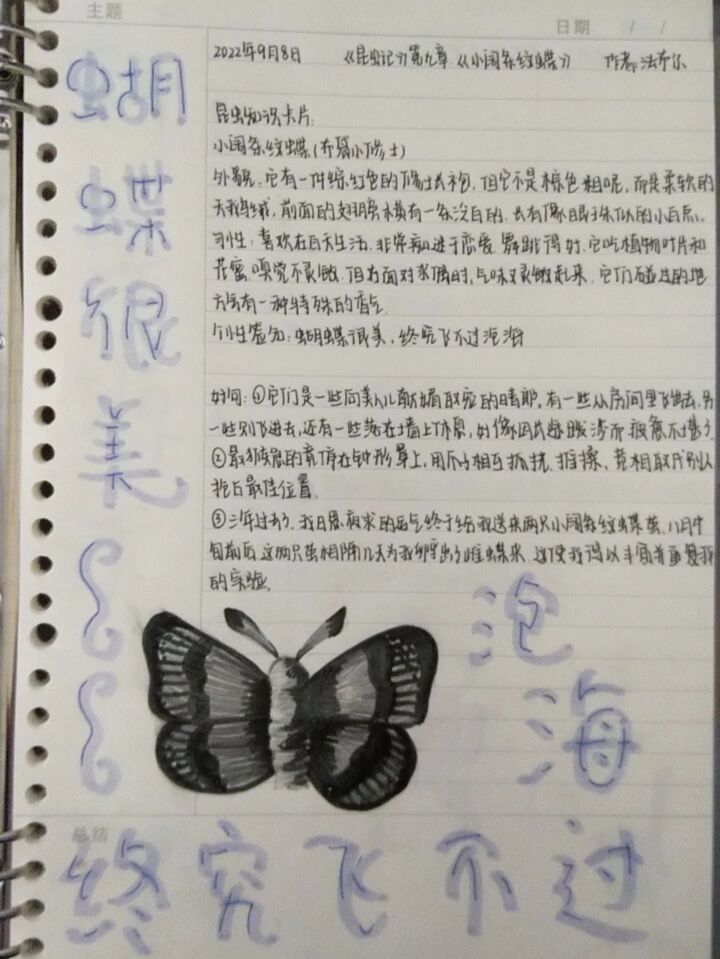 主题
日期 / /
2022年9月8日 《昆虫记》第九章《小阔条纹蝶》 作者:法布尔
昆虫知识卡片:
小阔条纹蝶(布带小修士)
外貌:它有一件棕红色的修士长袍.但它不是棕色粗呢,而是柔软的
天鹅绒,前面的翅膀横有一条泛白的.长有像眼子似的小白点.
习性:喜欢在白天生活.非常痴迷于恋爱.舞跳得好.它吃植物叶片和
花蜜.嗅觉不灵敏.但当面对求偶时,气味又灵敏起来.它们碰过的地
方会有一种特殊的香气
个性签名:蝴蝶很美,终究飞不过沧海
好句:①它们是一些向美人儿献媚取宠的情郎,有一些从房间里飞出去,另
一些则飞进去,还有一些落在墙上休息,好像因长途跋涉而疲惫不堪了.
②最
的
停在钟形罩上,用爪子相互抓挠.推搡,竞相取
以
抢占最佳位置.
③三年过去了.我日思夜求的运气终于给我送来两只小阔条纹蝶茧.八月中
旬前后这两只茧相隔几天为我孵出了雌蝶来.这使我得以丰富并重复我
的实验.
蝴
蝶
很
美
沧
海
总结
终究飞不过